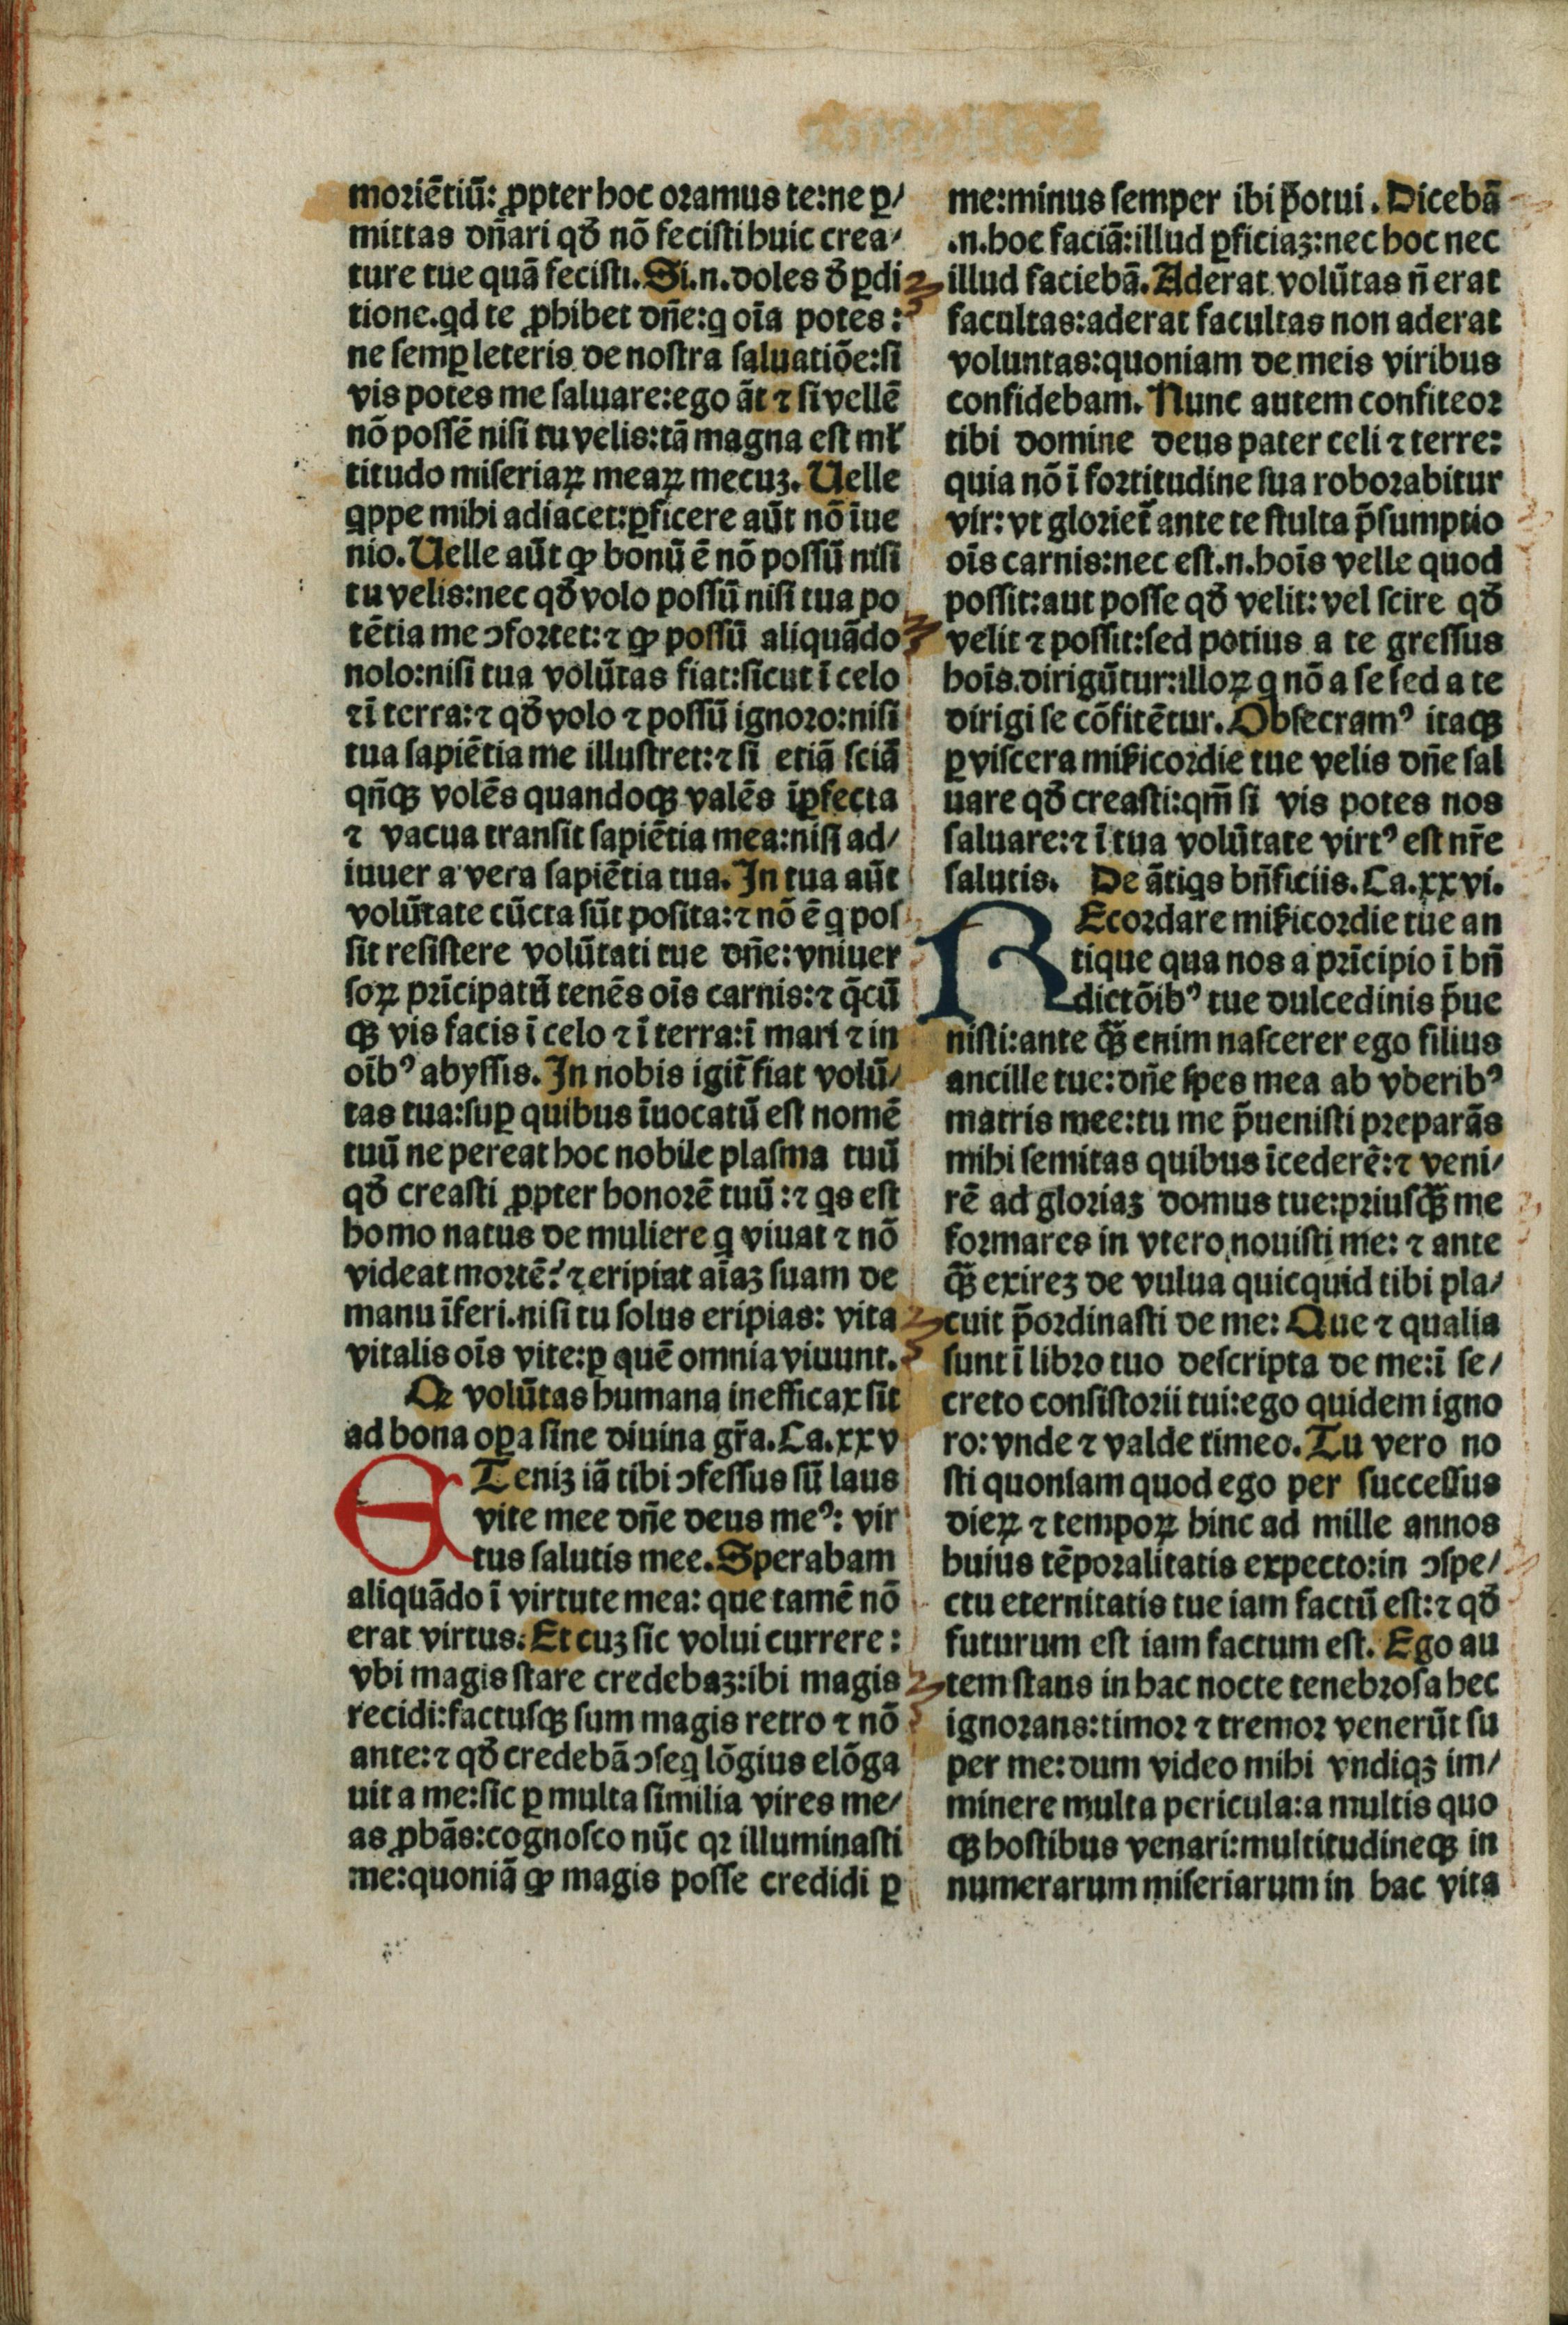 moriētiū: ꝓpter hoc oramus te:ne ꝑ/
mittas dn̄ari qđ nō fecisti huic crea/
ture tue quā fecisti. Si.n.doles đ ꝑdi
tione.qd te ꝓhibet dn̄e:q oīa potes:
ne semꝑ leteris de nostra saluatiōe:si
vis potes me saluare:ego āt ⁊ si vellē
nō possē nisi tu velis:tā magna est ml̄
titudo miseriaꝝ meaꝝ mecuꝫ. Uelle
qppe mihi adiacet:ꝑficere aūt nō īue
nio. Uelle aūt ꝙ bonū ē nō possū nisi
tu velis:nec qđ volo possū nisi tua po
tētia me ꝯfortet:⁊ ꝙ possū aliquādo
nolo:nisi tua volūtas fiat:sicut ī celo
⁊ ī terra:⁊ qđ volo ⁊ possū ignoro:nisi
tua sapiētia me illustret:⁊ si etiā sciā
qn̄qꝫ volēs quandoqꝫ valēs īꝑfecta
⁊ vacua transit sapiētia mea:nisi ad/
iuuer a vera sapiētia tua. In tua aūt
volūtate cūcta sūt posita:⁊ nō ē q pos
sit resistere volūtati tue dn̄e:vniuer
soꝝ prīcipatū tenēs oīs carnis:⁊ q̄cū
qꝫ vis facis ī celo ⁊ ī terra:ī mari ⁊ in
oībꝰ abyssis. In nobis igit̄ fiat volū/
tas tua:suꝑ quibus īuocatū est nomē
tuū ne pereat hoc nobile plasma tuū
qđ creasti ꝓpter honorē tuū:⁊ qs est
homo natus de muliere q viuat ⁊ nō
videat mortē:⁊ eripiat aīaꝫ suam de
manu īferi.nisi tu solus eripias: vita
vitalis oīs vite:ꝑ quē omnia viuunt.
Ꝙ volūtas humana inefficax sit
ad bona oꝑa sine diuina gr̄a. Ca.xxv
ETeniꝫ iā tibi ꝯfessus sū laus
vite mee dn̄e deus meꝰ: vir
tus salutis mee. Sperabam
aliquādo ī virtute mea: que tamē nō
erat virtus. Et cuꝫ sic volui currere:
vbi magis stare credebaꝫ:ibi magis
recidi:factusqꝫ sum magis retro ⁊ nō
ante:⁊ qđ credebā ꝯseq lōgius elōga
uit a me:sic ꝑ multa similia vires me/
as ꝓbās:cognosco nūc qꝛ illuminasti
me:quoniā ꝙ magis posse credidi ꝑ
me:minus semper ibi p̄otui. Dicebā
.n.hoc faciā:illud ꝑficiaꝫ:nec hoc nec
illud faciebā. Aderat volūtas n̄ erat
facultas:aderat facultas non aderat
voluntas:quoniam de meis viribus
confidebam. Nunc autem confiteor
tibi domine deus pater celi ⁊ terre:
quia nō ī fortitudine sua roborabitur
vir: vt gloriet̄ ante te stulta p̄sumptio
oīs carnis:nec est.n.hoīs velle quod
possit:aut posse qđ velit: vel scire qđ
velit ⁊ possit:sed potius a te gressus
hoīs.dirigūtur:illoꝝ q nō a se sed a te
dirigi se cōfitētur. Obsecramꝰ itaqꝫ
ꝑ viscera mīicordie tue velis dn̄e sal
uare qđ creasti:qm̄ si vis potes nos
saluare:⁊ ī tua volūtate virtꝰ est nr̄e
salutis. De ātiqs bn̄ficiis. Ca.xxvi.
REcordare mīicordie tue an
tique qua nos a prīcipio ī bn̄
dictōibꝰ tue dulcedinis p̄ue
nisti:ante qꝫ̄ enim nascerer ego filius
ancille tue:dn̄e spes mea ab vberibꝰ
matris mee:tu me p̄uenisti preparās
mihi semitas quibus īcederē:⁊ veni/
rē ad gloriaꝫ domus tue:priusqꝫ̄ me
formares in vtero nouisti me: ⁊ ante
qꝫ̄ exireꝫ de vulua quicquid tibi pla/
cuit p̄ordinasti de me: Que ⁊ qualia
sunt ī libro tuo descripta de me:ī se/
creto consistorii tui:ego quidem igno
ro: vnde ⁊ valde timeo. Tu vero no
sti quoniam quod ego per successus
dieꝝ ⁊ tempoꝝ hinc ad mille annos
huius tēporalitatis expecto:in ꝯspe/
ctu eternitatis tue iam factū est:⁊ qđ
futurum est iam factum est. Ego au
tem stans in hac nocte tenebrosa hec
ignorans:timor ⁊ tremor venerūt su
per me:dum video mihi vndiqꝫ im/
minere multa pericula:a multis quo
qꝫ hostibus venari:multitudineqꝫ in
numerarum miseriarum in hac vita